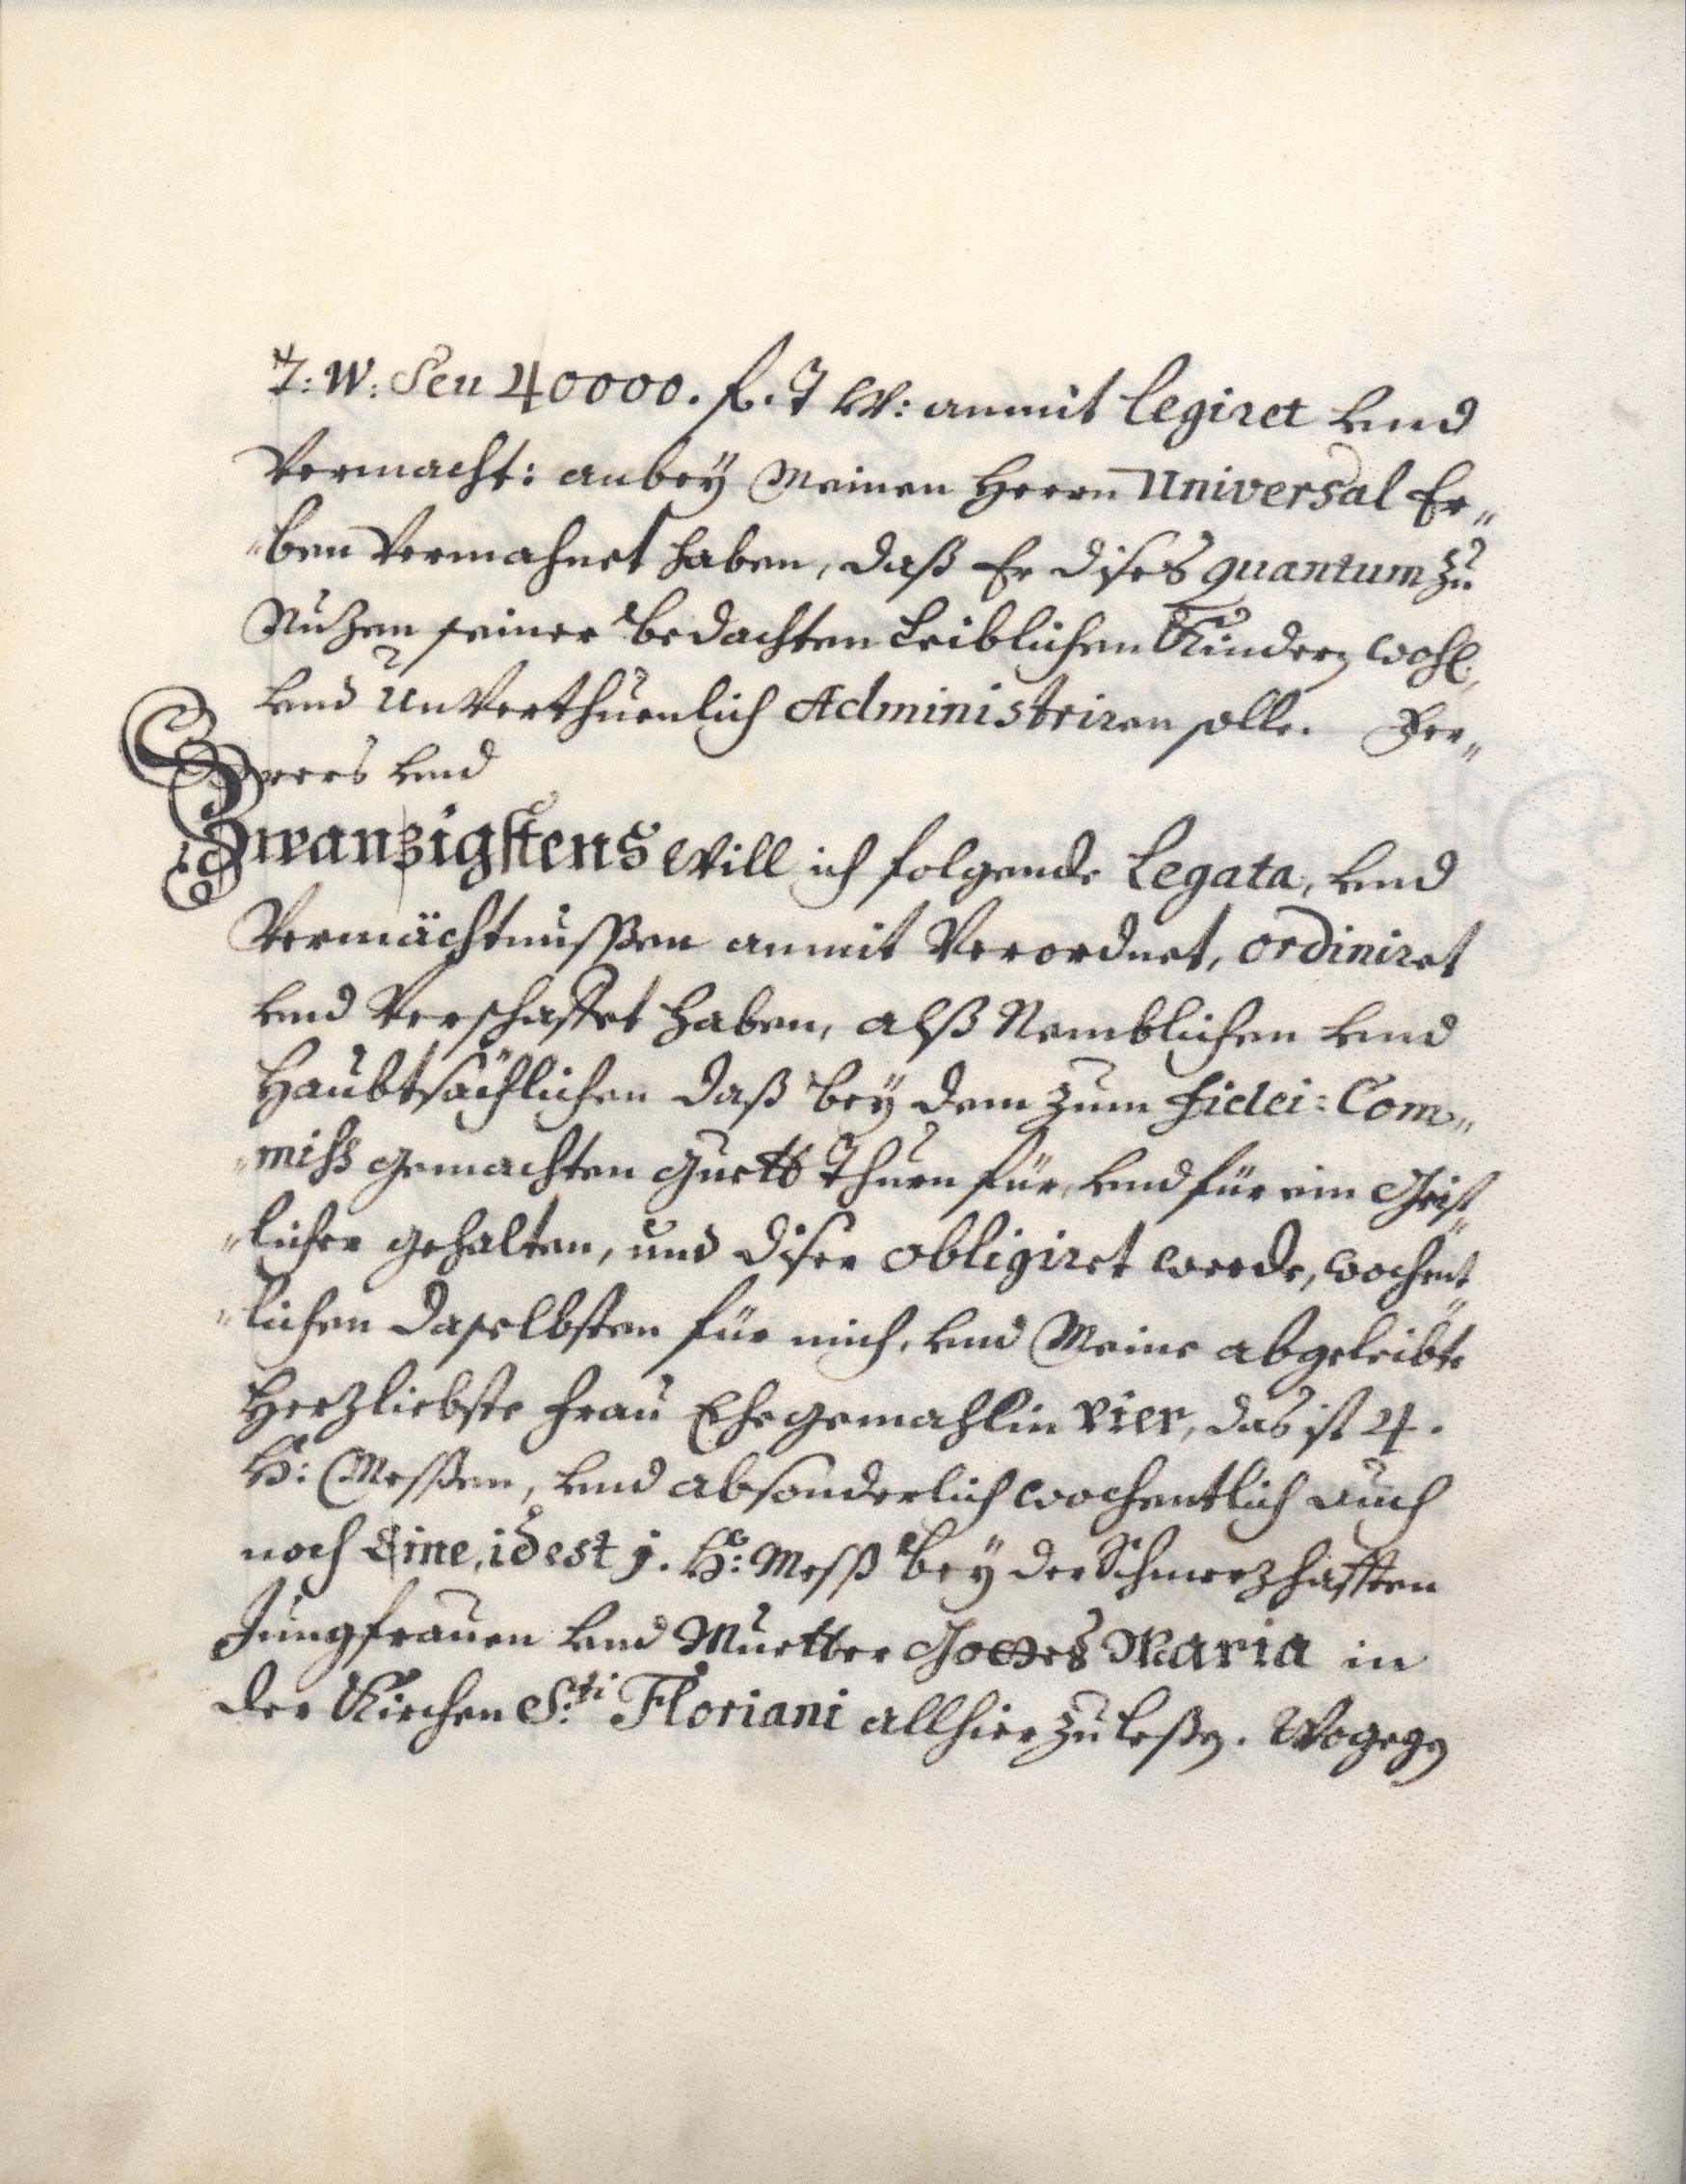 T: W: Seu 40000. f. T W: anmit legiret vnd
Vermacht: anbeÿ Meinen Herrn Universal Er„
„ben Vermahnet haben, daß Er dises quantum zu
Nuzen seiner bedachten Leiblichen Kindern wohl„
vnd UnVerthuenlich Administriren solle. Fer„
„rers vnd
Zwanzigstens Will ich folgende Legata, vnd
Vermächtnußen anmit Verordnet, ordiniret
vnd Verschaffet haben, alß Nemblichen vnd
Haubtsächlichen daß beÿ dem zum Fidei=Com„
„miss gemachten Guett Thurn für, vnd für ein Geist„
„licher gehalten, und diser obligiret werde, wochent„
„lichen daselbsten für mich, vnd Meine abgeleibte
Herzliebste Frau Ehegemahlin vier, das ist 4.
H: Meßen, vnd absonderlich wochentlich auch
noch Eine, id est j. H: Meß beÿ der Schmerzhafften
Jungfrauen vnd Muetter Gottes Maria in
der Kirchen S:ti Floriani allhier zu leßen. Wogegen